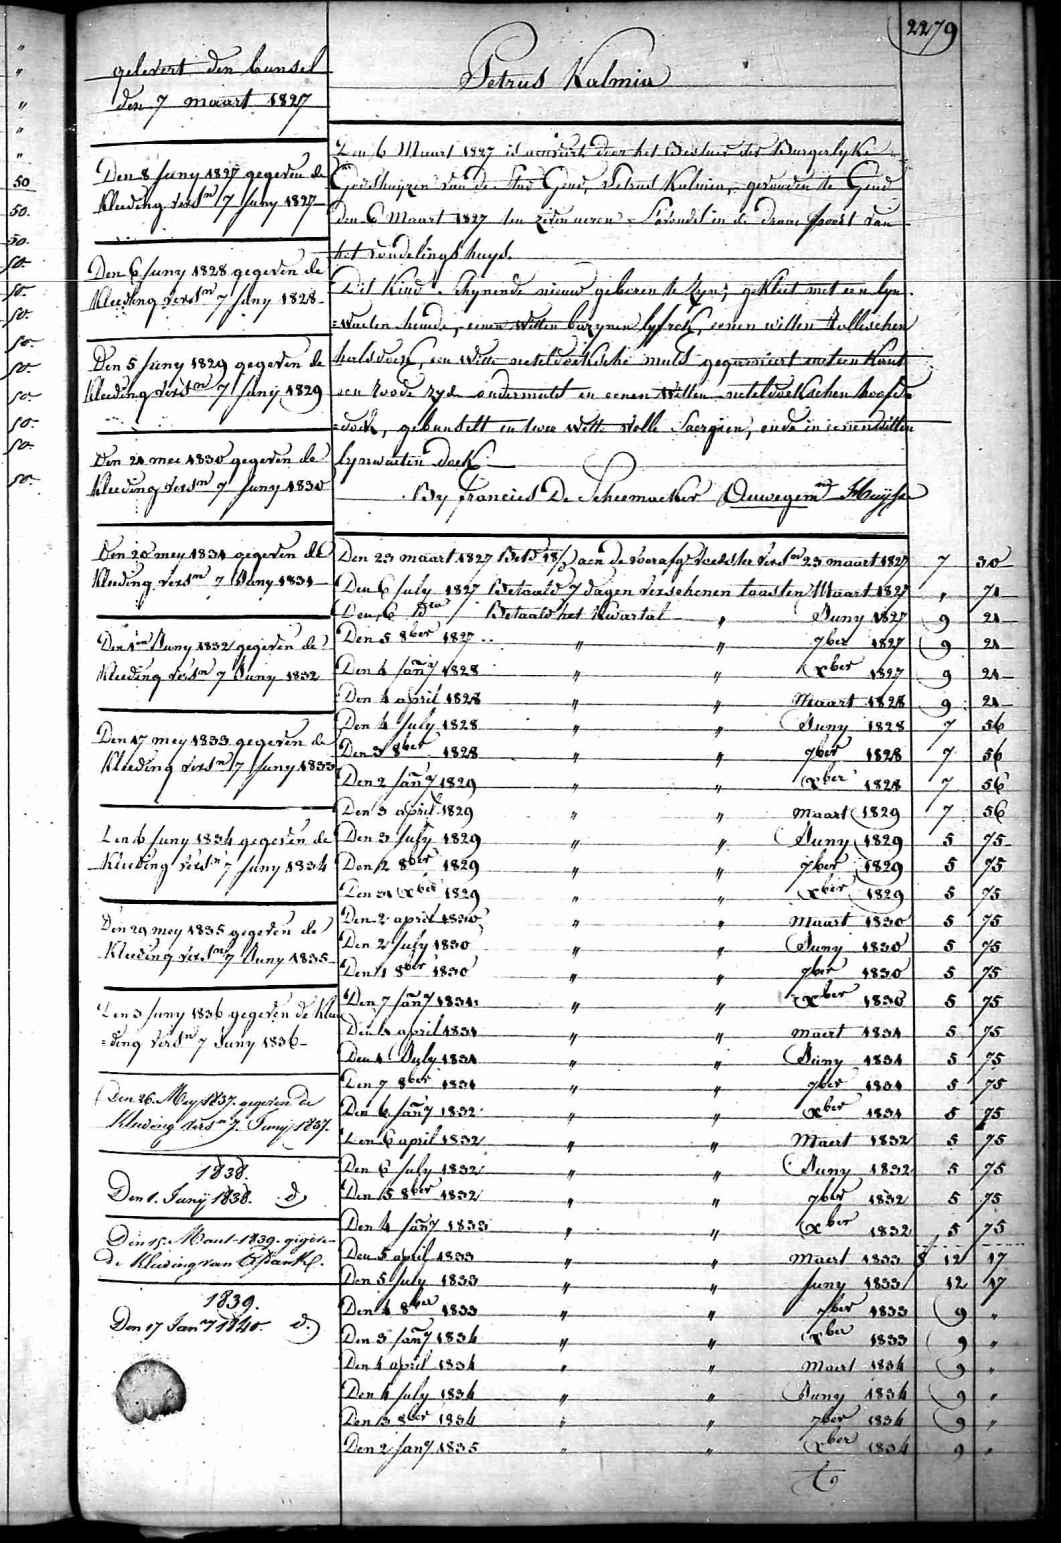 2279
gelevert den bunsel
den 7 maart 1827
Den 8 Juny 1827 gegeven de
Kleeding versn 7 Juny 1827
Den 6 Juny 1828 gegeven de
Kleeding versn 7 Juny 1828
Den 5 Juny 1829 gegeven de
Kleeding versn 7 Juny 1829
Den 21 mei 1830 gegeven de
Kleeding versn 7 Juny 1830
Den 20 mey 1831 gegeven de
Kleeding versn 7 Juny 1831
Den 1en Juny 1832 gegeven de
Kleeding versn 7 Juny 1832
Den 17 mey 1833 gegeven de
Kleeding versn 7 Juny 1833
Den 6 Juny 1834 gegeven de
Kleeding versn 7 Juny 1834
Den 29 mey 1835 gegeven de
Kleeding versn 7 Juny 1835
Den 3 Juny 1836 gegeven de Klee
=ding versn 7 Juny 1836
Den 26 Mey 1837 gegeven de
Kleeding versn 7 Juny 1837.
1838.
Den 1. Junij 1838. d
Den 15 Maart 1839 gegeven
de Kleeding van
1839.
Den 17 Jany 1840. d.
Petrus Kalmia
Den 6 Maart 1827 is aenveirt door het Bestuer der Burgerlyke
Godshuyzen van de Stad Gend, Petrus Kalmia, gevonden te Gend
den 6 Maart 1827 ten zeven ueren 's avonds in de draeu poort van
het vondelings huys.
Dit Kind schynende nieuw geboren te zyn; gekleet met een lyn
=waeten hemde, eenen witten bazynen lyfrok, eenen witten
halsdoek, een witte neteldoeksche muts gegarniert met een Kant
een roode zyde ondermuts en eenen witten neteldoekschen hoofd=
=doek, gebunselt in twee witte wolle Saergien, ende in eenen witten
lynwaeten doek
By Francies De Scheemaeker Auwegem Huysse
Den 23 maart 1827 Betd aen de voorafg versn 23 maart 1827 7 30
Den 6 July 1827 Betaald 7 dagen verschenen laasten Maart 1827 " 71
Den 6 den Betaald het Kwartal " Juny 1827 9 21
Den 5 8ber 1827 " " 7ber 1827 9 21
Den 4 Jany 1828 " " Xber 1827 9 21
Den 4 april 1828 " " Maart 1828 9 21
Den 4 July 1828 " " Juny 1828 7 56
Den 3 8ber 1828 " " 7ber 1828 7 56
Den 2 Jany 1829 " " Xber 1828 7 56
Den 3 april 1829 " " maart 1829 7 56
Den 3 July 1829 " " Juny 1829 5 75
Den 2 8ber 1829 " " 7ber 1829 5 75
Den 31 Xber 1829 " " Xber 1829 5 75
Den 2 april 1830 " " Maart 1830 5 75
Den 2 July 1830 " " Juny 1830 5 75
Den 1 8ber 1830 " " 7ber 1830 5 75
Den 7 Jany 1831 " " Xber 1830 5 75
Den 4 april 1831 " " maert 1831 5 75
Den 1 July 1831 " " Juny 1831 5 75
Den 7 8ber 1831 " " 7ber 1831 5 75
Den 6 Jany 1832 " " Xber 1831 5 75
Den 6 april 1832 " " Maert 1832 5 75
Den 6 July 1832 " " Juny 1832 5 75
Den 5 8ber 1832 " " 7ber 1832 5 75
Den 4 Jany 1833 " " Xber 1832 5 75
Den 5 april 1833 " " Maert 1833 12 17
Den 5 July 1833 " " Juny 1833 12 17
Den 4 8ber 1833 " " 7ber 1833 9 "
Den 3 Jany 1834 " " Xber 1833 9 "
Den 4 april 1834 " " Maert 1834 9 "
Den 4 July 1834 " " Juny 1834 9 "
Den 3 8ber 1834 " " 7ber 1834 9 "
Den 2 Jany 1835 " " Xber 1834 9 "